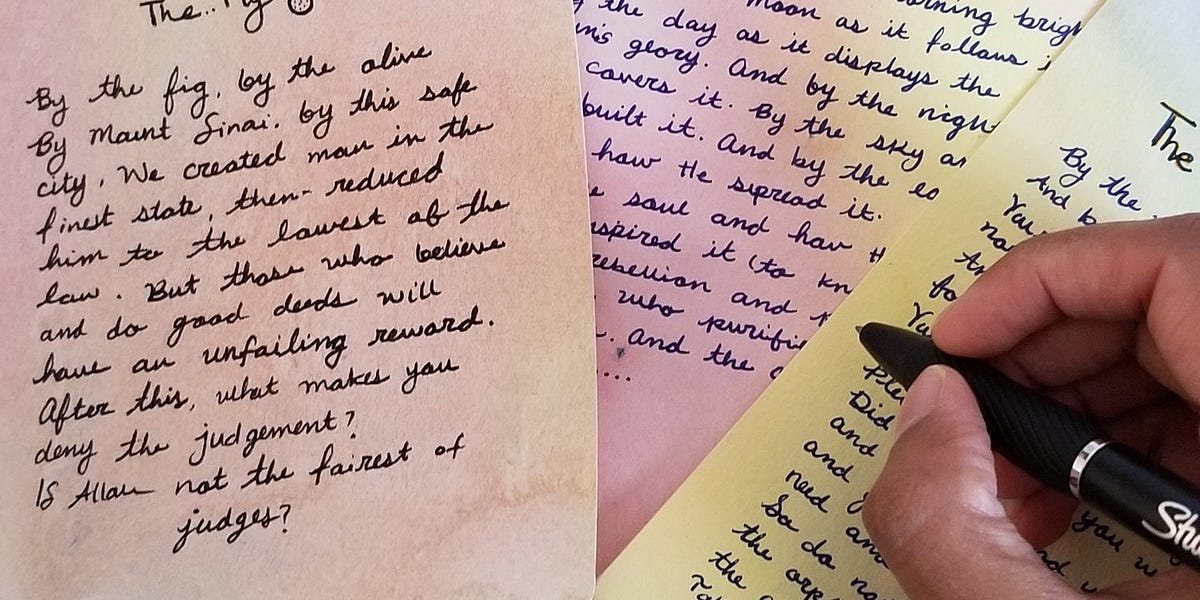 The Fig
By the fig, by the olive
By Mount Sinai, by this safe
city, We created man in the
finest state, then reduced
him to the lowest of the
low. But those who believe
and do good deeds will
have an unfailing reward.
After this, what makes you
deny the judgement?
Is Allah not the fairest of
judges?
morning brigh
Moon as it follows i
the day as it displays the
glory. And by the nigh
covers it. By the sky a
built it. And by the ea
how He spread it.
soul and how H
inspired it (to kn
rebellion and p
who purifi
. And the
....
The
By the
And b
You
no
An
fo
You
ple
Did
and
and y
need and
So do no
the orp
the
you w
nd
Sha